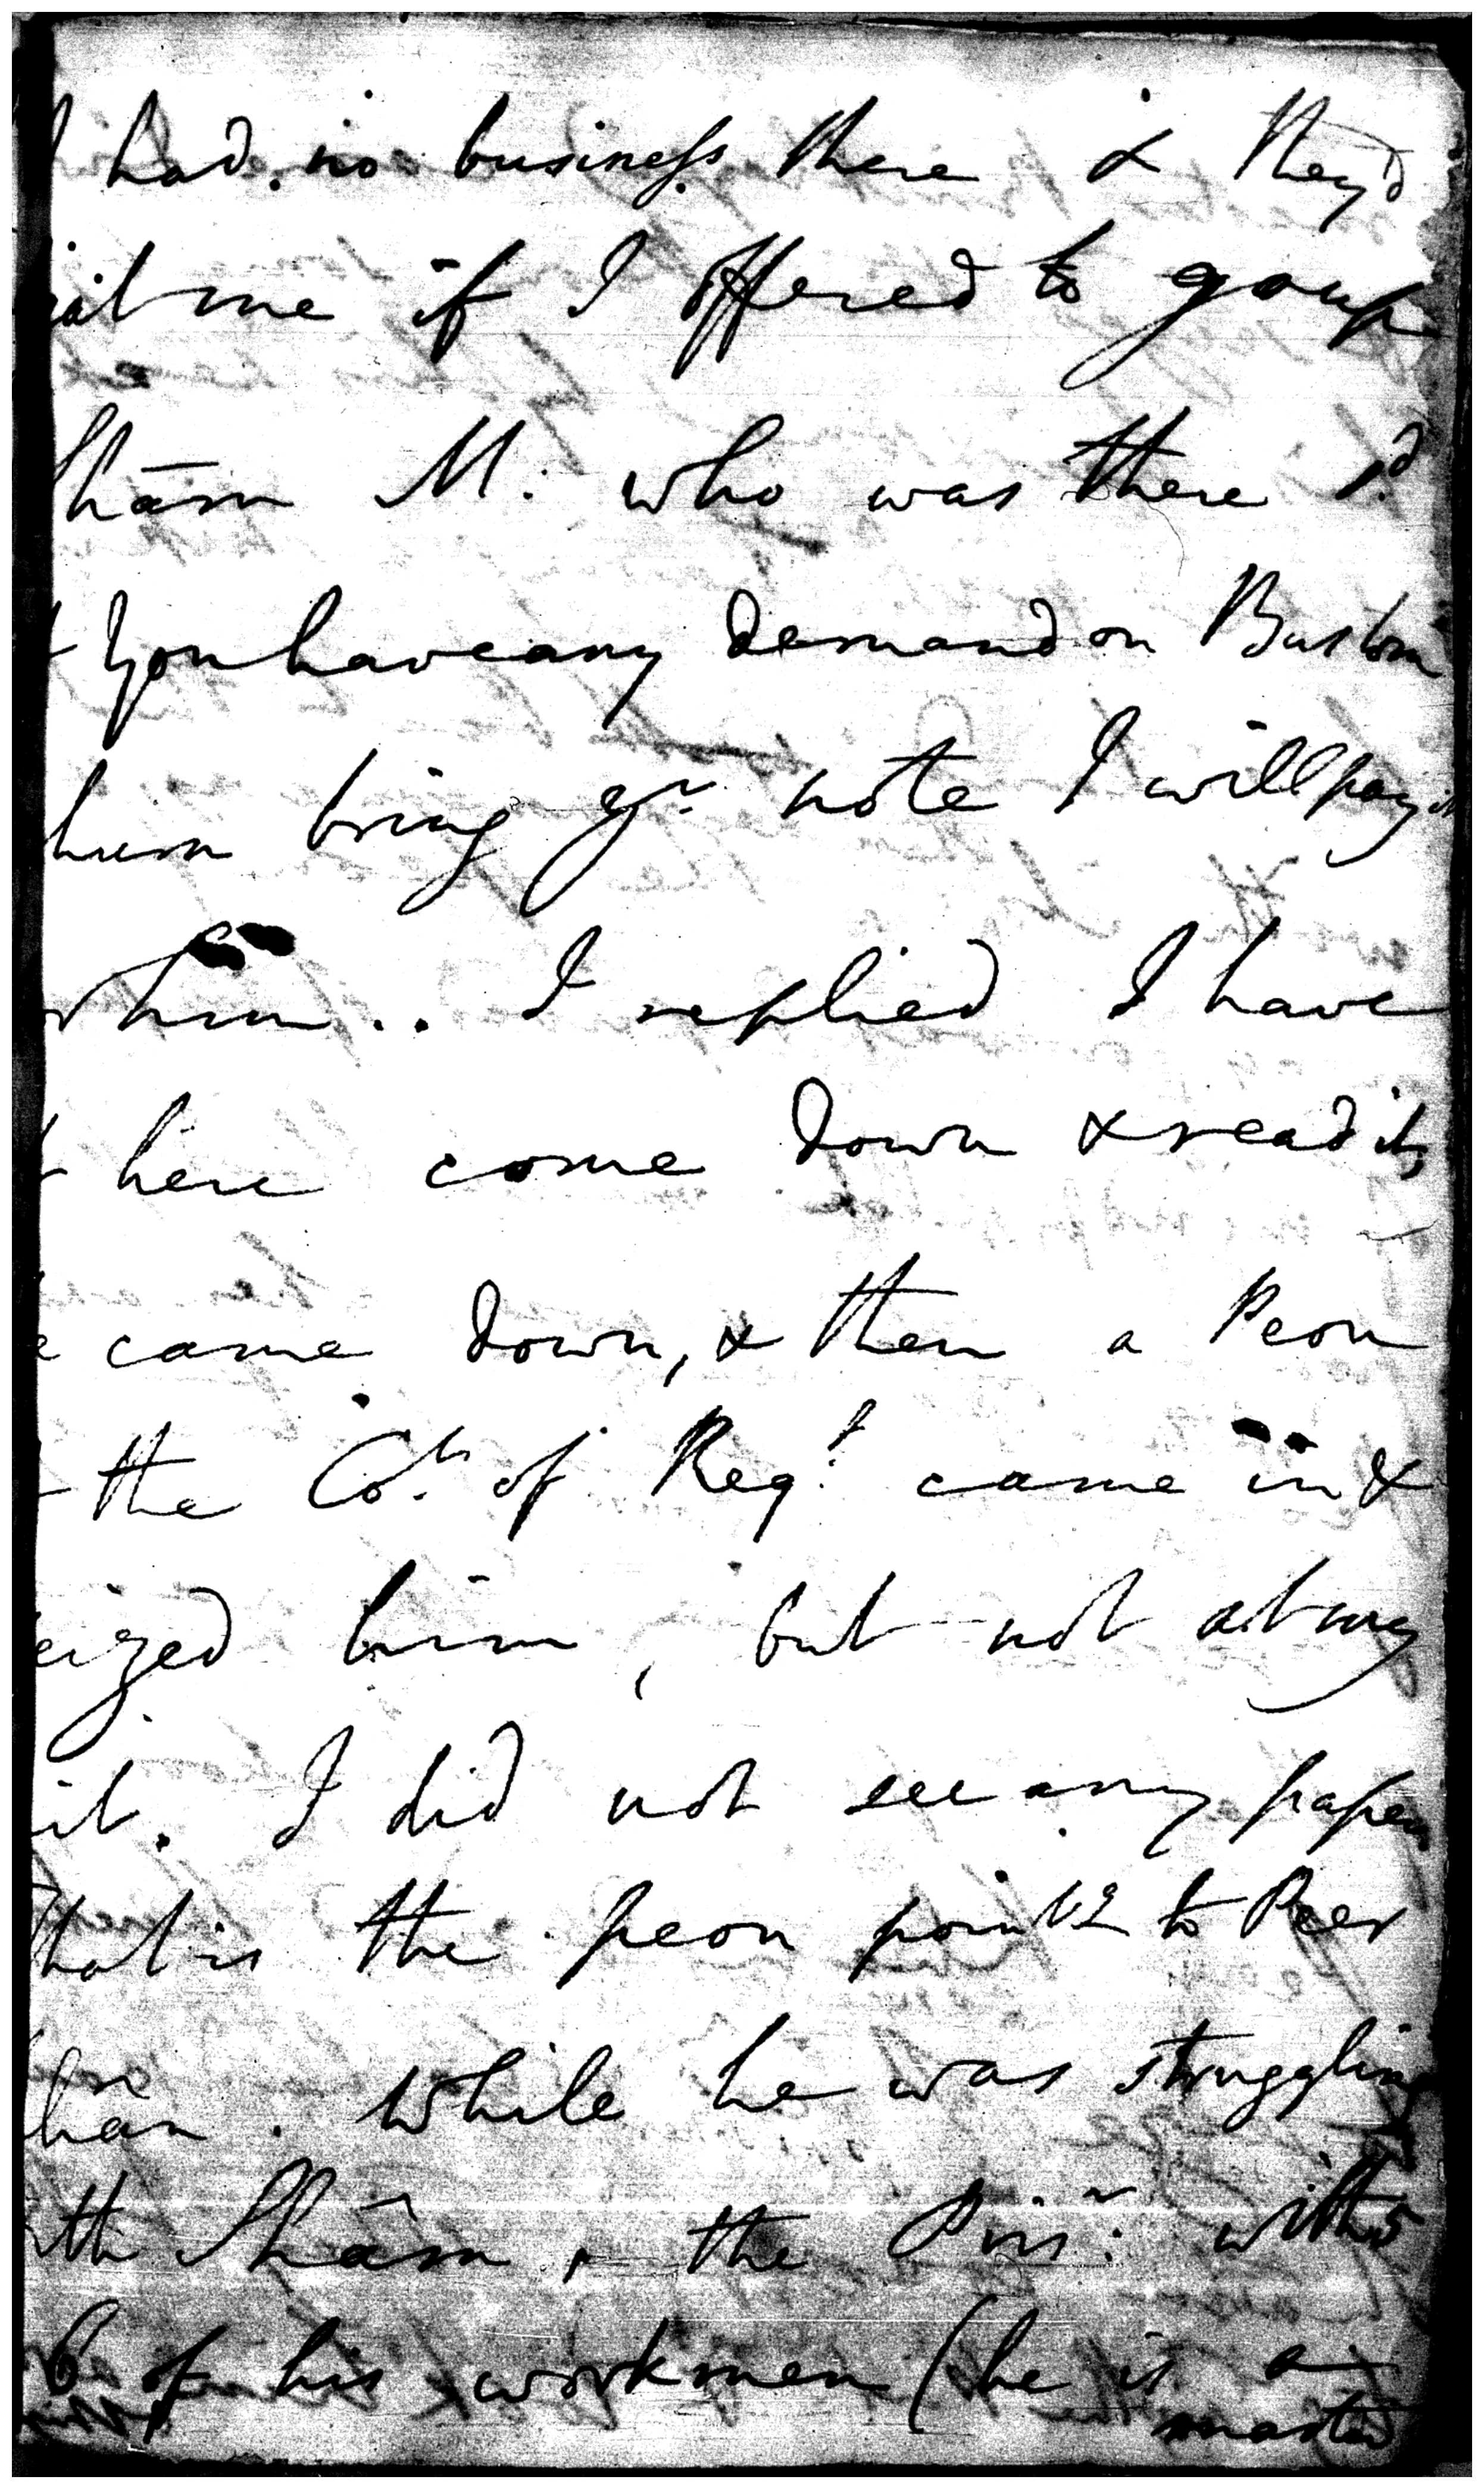 I had no business there & they'd
hit me if I offered to go up
Shām M. who was there s.d
if You have any demand on Bustom
him bring yr note I will pay it
for him.. I replied I have
it here come down & read it,
he came down, & then a Peon
of the Co.ts of Req.t came in &
seized him, but not at my
suit. I did not see any paper
That is the peon pointg to Peer
Khān. While he was struggling
with Shâm, the Pris.r with 5
6 of his workmen (he is a
master